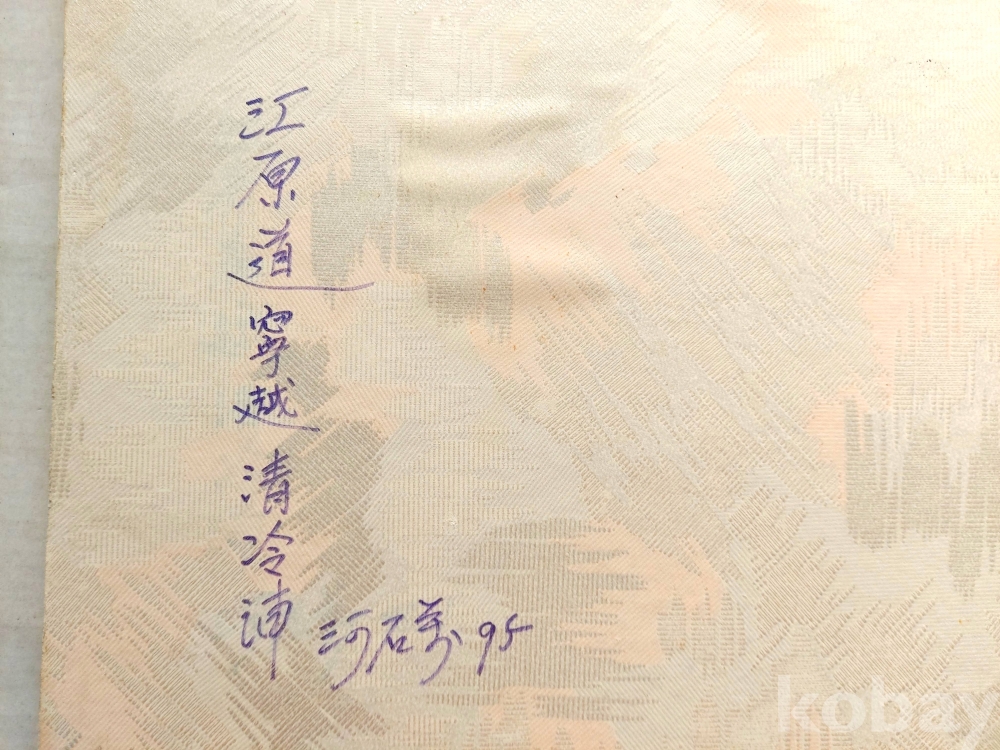 江原道 寧越 清冷浦
河石 95
kobay